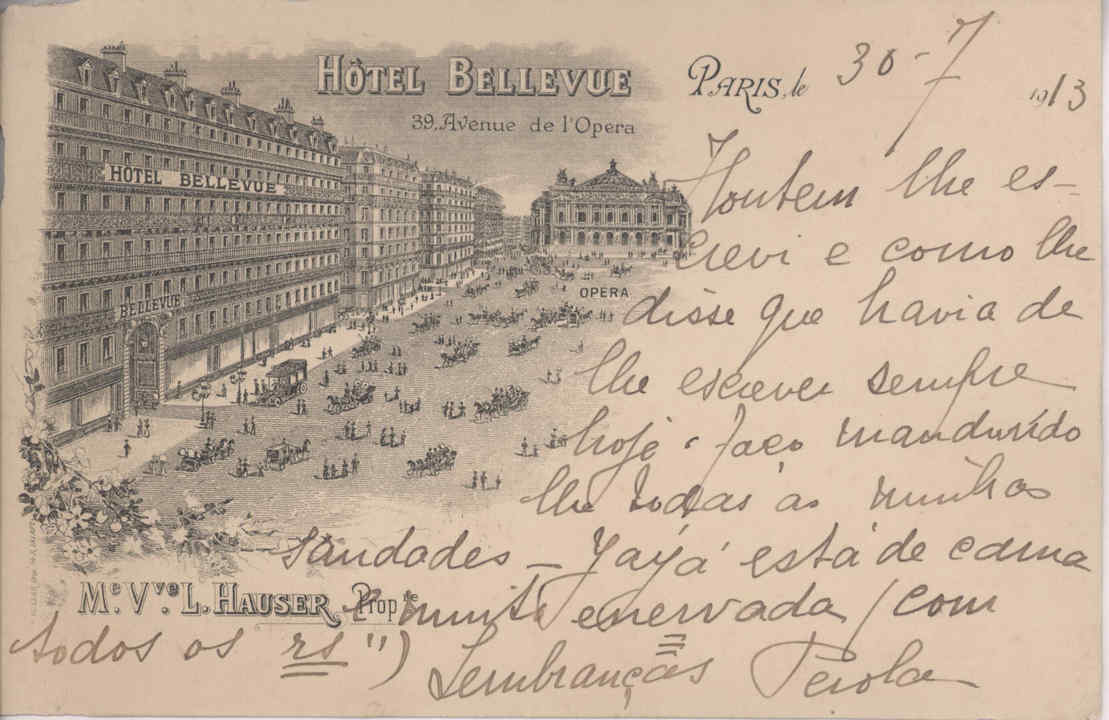 HÔTEL BELLEVUE
39, Avenue de l'Opera
PARIS, le 30-7 1913
HÔTEL BELLEVUE
BELLEVUE
OPERA
Me. Vve. L. HAUSER, Propre
Hontem lhe es-
crevi e como lhe
disse que havia de
lhe escrever sempre
hoje faço mandando
lhe todas as minhas
saudades — Yayá está de cama
e muito enervada (com
todos os rs")
Lembranças Perola